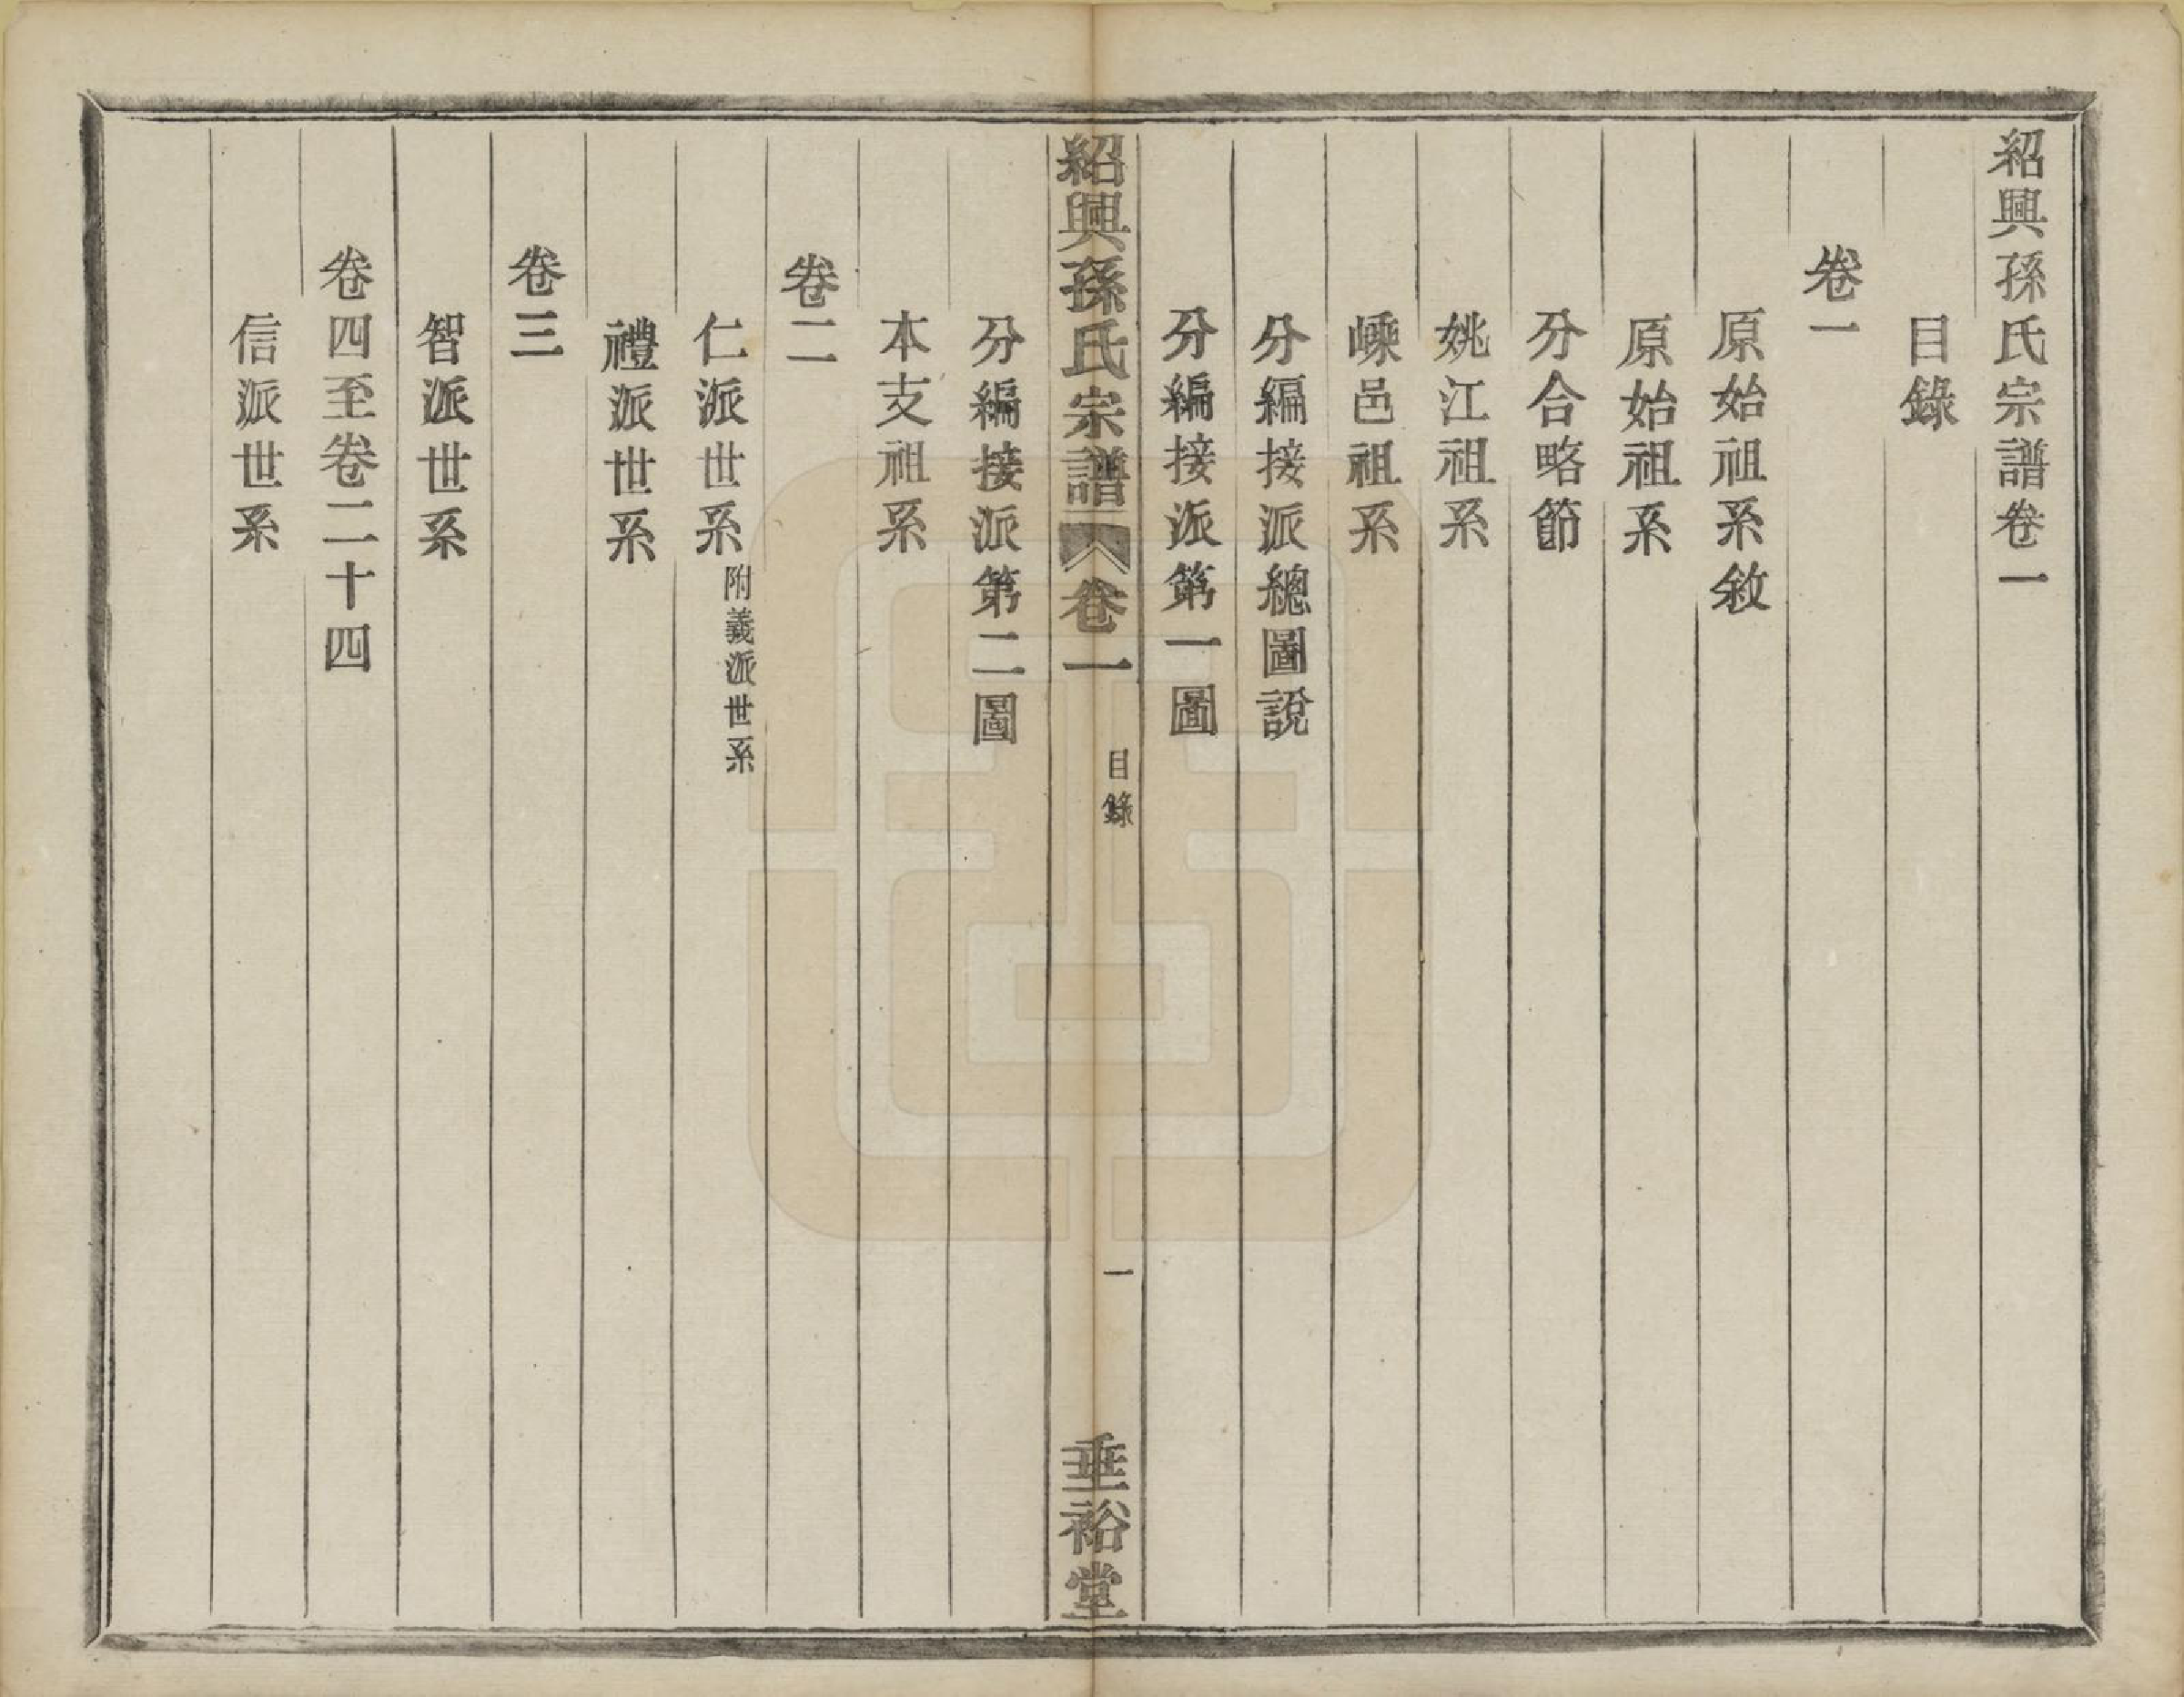 紹興孫氏宗譜卷一
目錄
卷一
原始祖系敘
原始祖系
分合略節
姚江祖系
嵊邑祖系
分編接派總圖說
分編接派第一圖
紹興孫氏宗譜 卷一 目錄 一 垂裕堂
分編接派第二圖
本支祖系
卷二
仁派世系 附義派世系
禮派世系
卷三
智派世系
卷四至卷二十四
信派世系